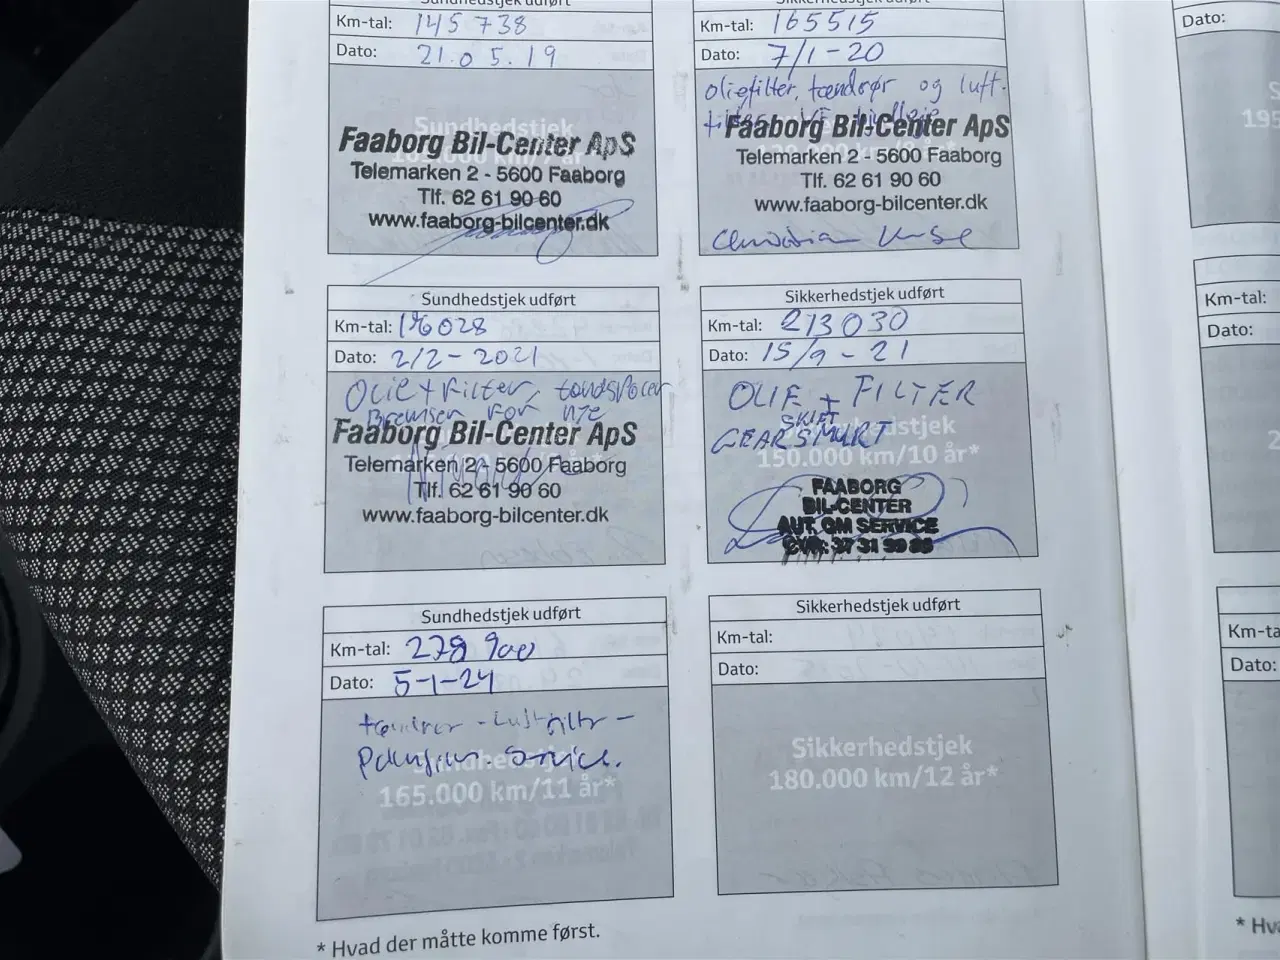 Sundhedstjek udført
Km-tal: 145 738
Dato: 21.05.19
Sundhedstjek
Faaborg Bil-Center ApS
Telemarken 2 - 5600 Faaborg
Tlf. 62 61 90 60
www.faaborg-bilcenter.dk
Sikkerhedstjek udført
Km-tal: 165515
Dato: 7/1-20
oliefilter, tændrør og luft-
Faaborg Bil-Center ApS
Telemarken 2 - 5600 Faaborg
Tlf. 62 61 90 60
www.faaborg-bilcenter.dk
Sundhedstjek udført
Km-tal:
Dato: 2/2-2021
Olie + Filter,
Bremser For
Faaborg Bil-Center ApS
Telemarken 2 - 5600 Faaborg
Tlf. 62 61 90 60
www.faaborg-bilcenter.dk
Sikkerhedstjek udført
Km-tal: 213030
Dato: 15/9-21
OLIE + FILTER
SKIFT
GEARSMURT
150.000 km/10 år*
FAABORG
BIL-CENTER
AUT. QM SERVICE
CVR: 37 31 99 86
Sundhedstjek udført
Km-tal: 278 900
Dato: 5-1-24
Luftfilter -
service.
Sundhedstjek
165.000 km/11 år*
Sikkerhedstjek udført
Km-tal:
Dato:
Sikkerhedstjek
180.000 km/12 år*
* Hvad der måtte komme først.
Dato:
195
Km-tal:
Dato:
Km-ta
Dato:
* Hv